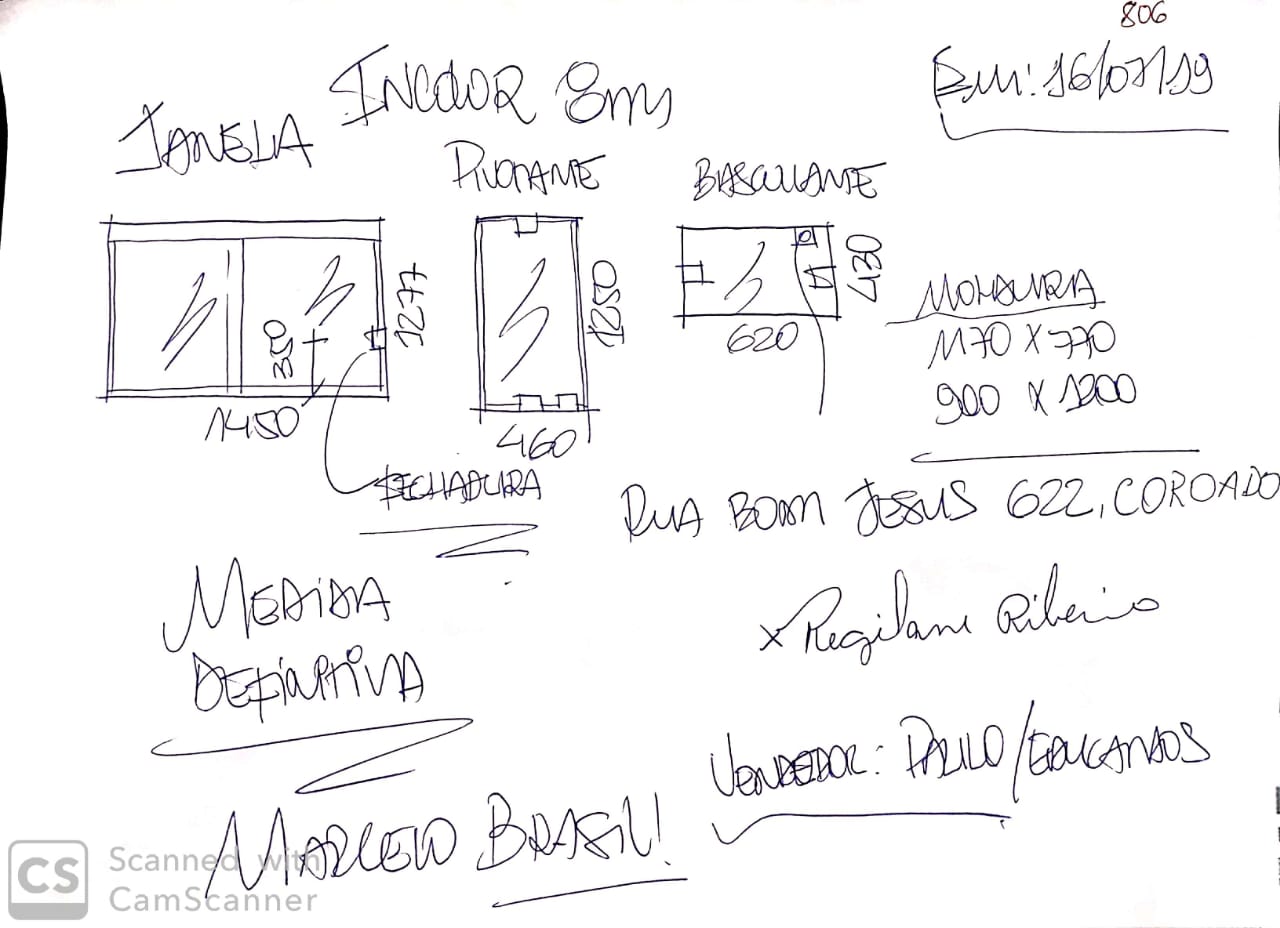 806
Em: 16/07/19
INCOLOR 8mm
JANELA
PIVOTANTE
BASCULANTE
1277
350
1450
1250
460
430
620
FECHADURA
MOLDURA
1170 X 770
900 X 1200
RUA BOM JESUS 622, COROADO
MEDIDA
DEFINITIVA
x Regilane Ribeiro
VENDEDOR: PAULO/EDUCANDOS
MARCELO BRASIL!
CS
Scanned with
CamScanner